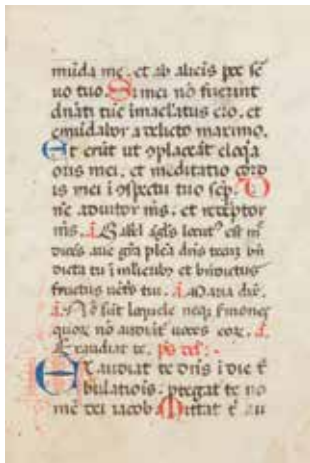 mūda me. et ab alieis pce sē
uo tuo. Si mei nō fuerint
dnāti tūc īmacl'atus ero. et
emūdabor a delicto maximo.
Et erūt ut ꝯplaceāt eloqa
oris mei. et meditatio cord
is mei ī ꝯspectu tuo sēp. D
ne adiutor m̄s. et receptor
m̄s. a. Gabl' āgl's locut' est m̄
dices aue grā plēa dn̄s tecū bn̄
dicta tu ī mlieribȝ et bn̄dictus
fructus uētris tui. a. Maria dix̄.
a. Nō sūt loquele neqȝ s̄mones
quoȝ nō audiāt̄ uoces eoȝ. a.
Exaudiat te. ps dd'.
Exaudiat te dn̄s ī die t̄
bulatiōis. ptegat te no
mē dei iacob. Mittat t' au